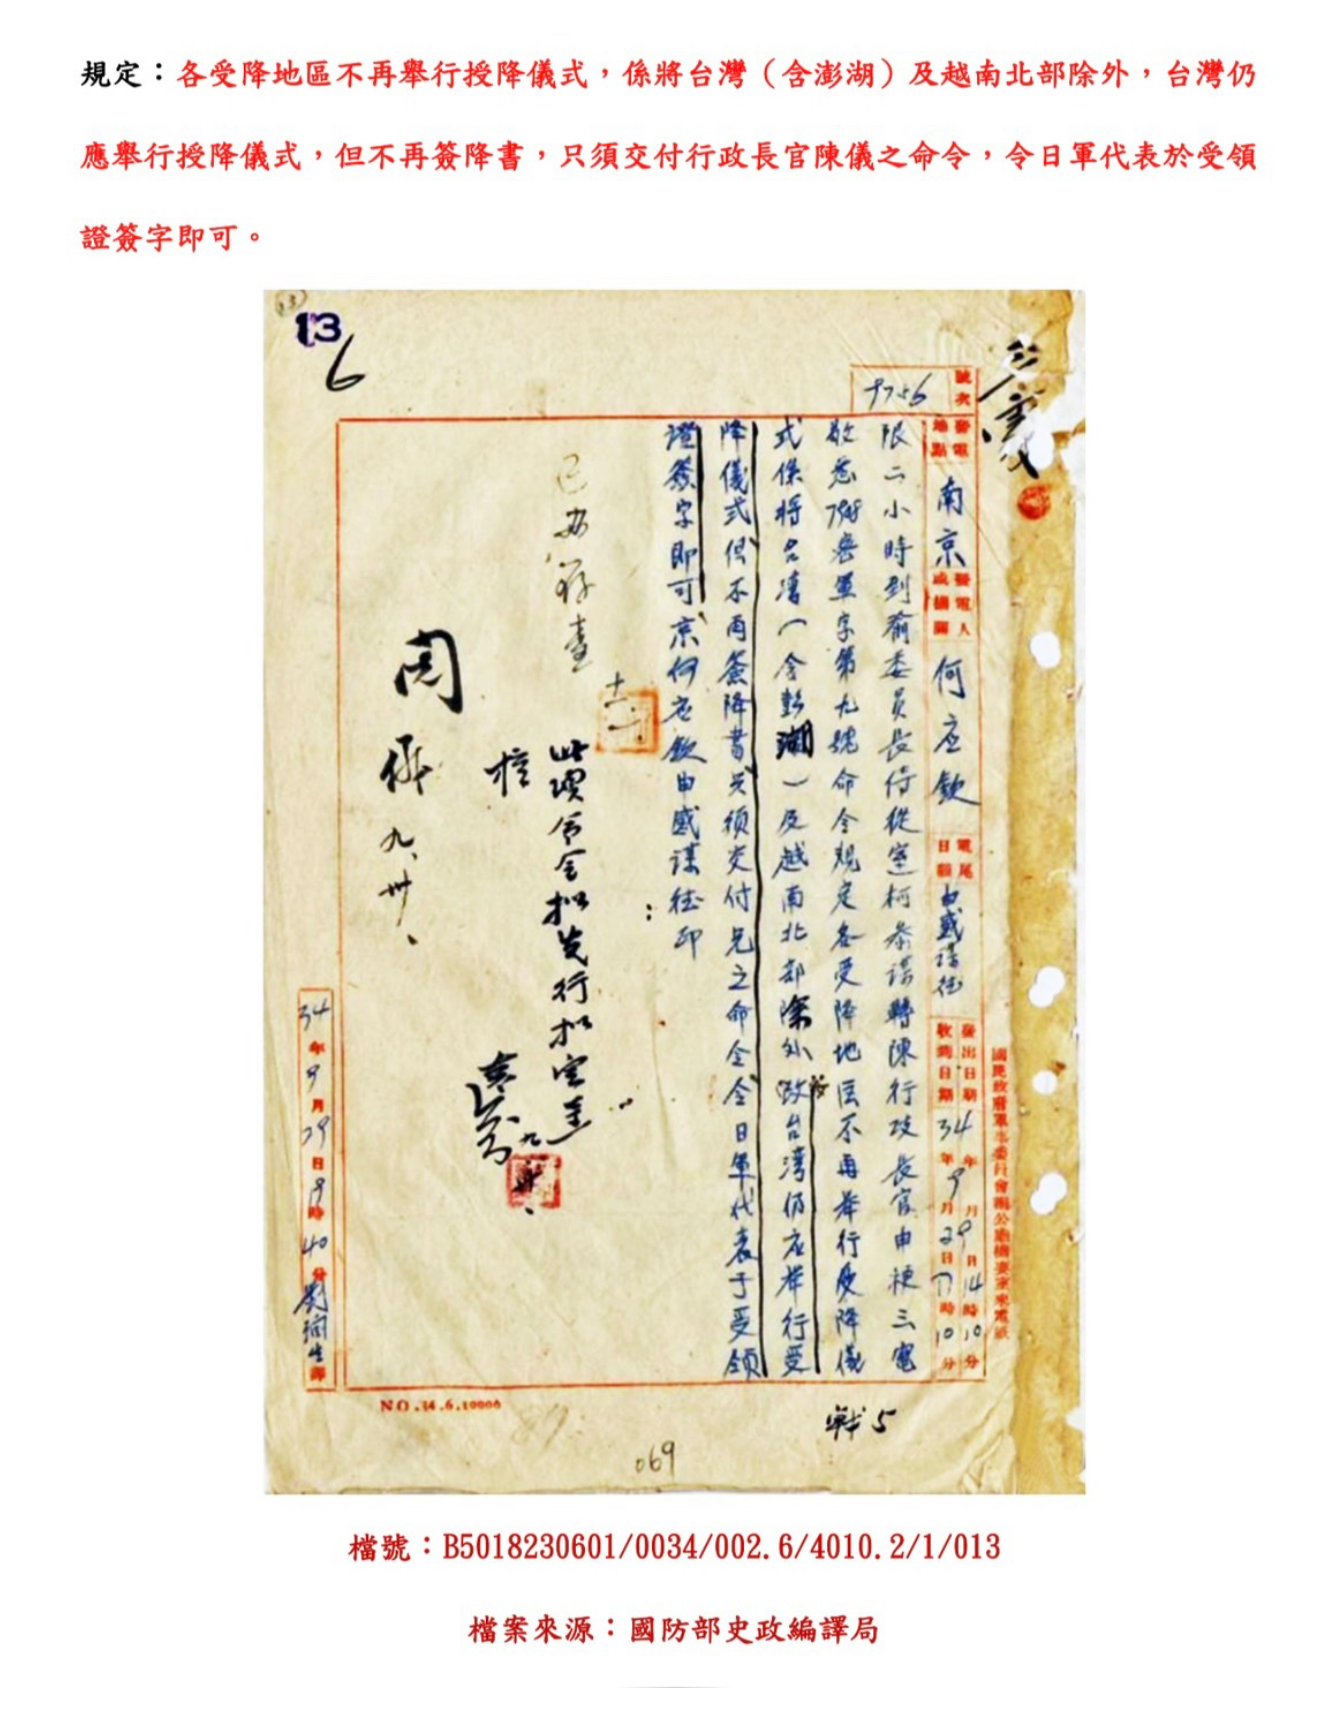 規定：各受降地區不再舉行授降儀式，係將台灣（含澎湖）及越南北部除外，台灣仍
應舉行授降儀式，但不再簽降書，只須交付行政長官陳儀之命令，令日軍代表於受領
證簽字即可。
13
6
號次 9756
發電地點 南京
發電人或機關 何应欽
電尾日韻 申感謀征
發出日期 34年9月29日14時10分
收到日期 34年9月29日17時10分
國民政府軍事委員會辦公廳機要室來電紙
限二小時到渝委員長侍從室柯参謀轉陳行政長官申梗三電
敬悉 密軍字第九號命令規定各受降地区不再举行受降儀
式係将台湾（含彭湖）及越南北部除外 故台湾仍应举行受
降儀式但不再簽降書只須交付兄之命令令日軍代表于受領
證簽字即可京何应欽申感謀征印
已
存查
此項命令擬
核
九、卅、
34年9月29日19時40分 譯
NO.34.6.10000
戰5
069
檔號：B5018230601/0034/002.6/4010.2/1/013
檔案來源：國防部史政編譯局